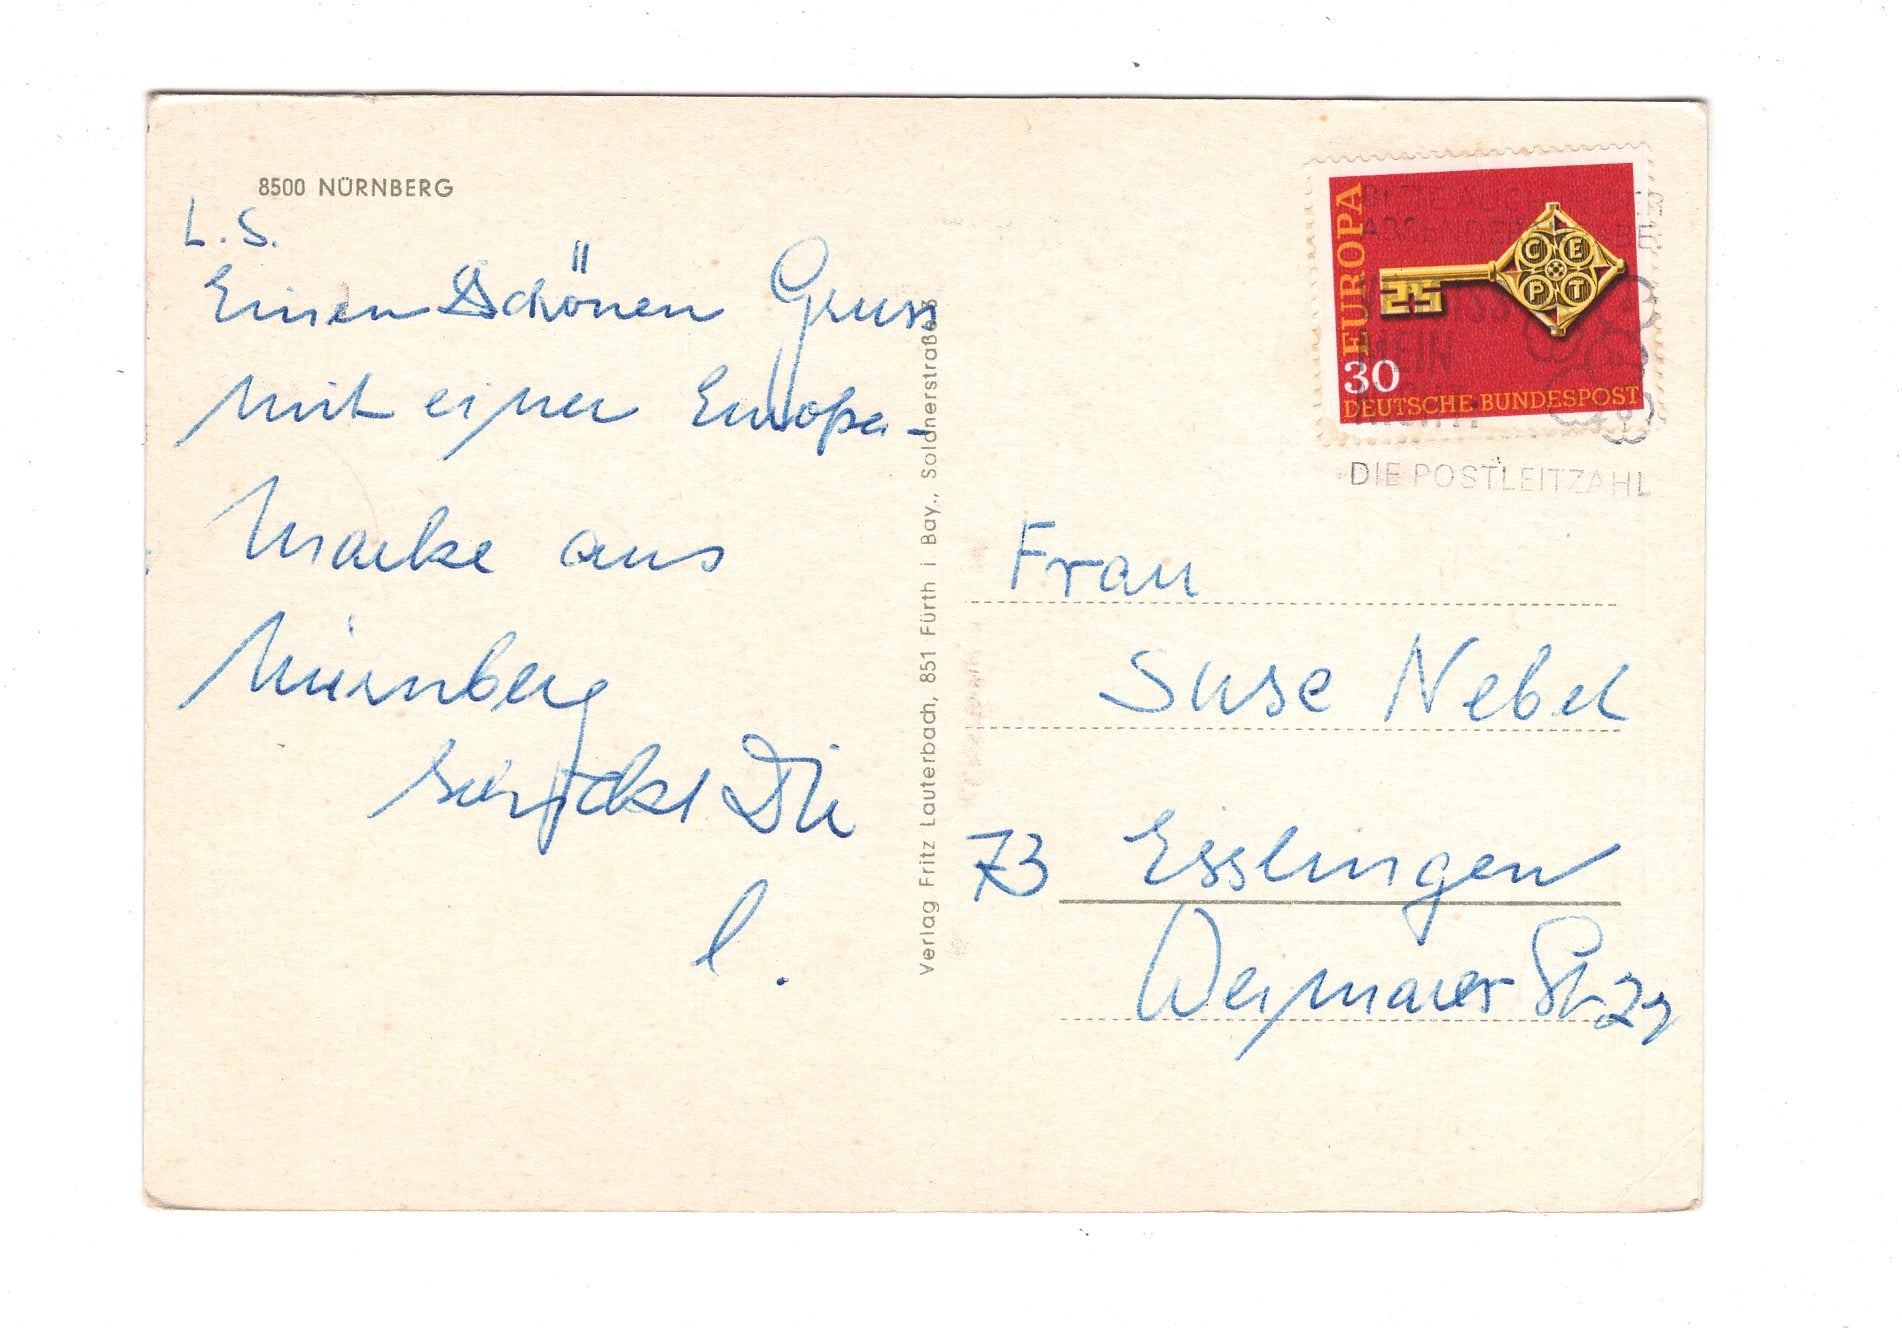 8500 NÜRNBERG
L. S.
Einen Schönen Gruss
mit einer Europa-
Marke aus
Nürnberg
schickt Dir
l.
Verlag Fritz Lauterbach, 851 Fürth i Bay., Soldnerstraße
EUROPA
C E
P T
30
DEUTSCHE BUNDESPOST
DIE POSTLEITZAHL
Frau
Suse Nebel
73 Esslingen
Weimarer St.